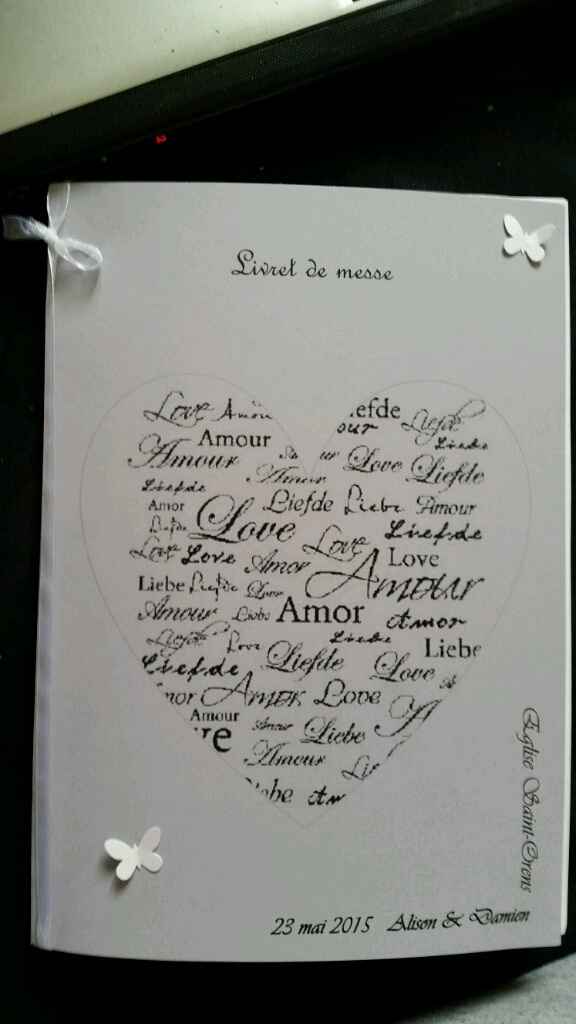 Livret de messe
Love Amour efde Liefde
our
Amour Liebe
Amour ur Love Liefde
Amour
Liefde
Amor Liefde Liebe Amour
Liefde Love Liefde
Love Love Amor Love Love
Liebe Liefde Love Amour
Amour Liebe Amor Amor
Liefde Love Liebe Liebe
Liefde Liefde Love
mor Amor Love
Amour Amour Liebe
re
Amour Lie
ebe Am
Eglise Saint-Orens
23 mai 2015 Alison & Damien